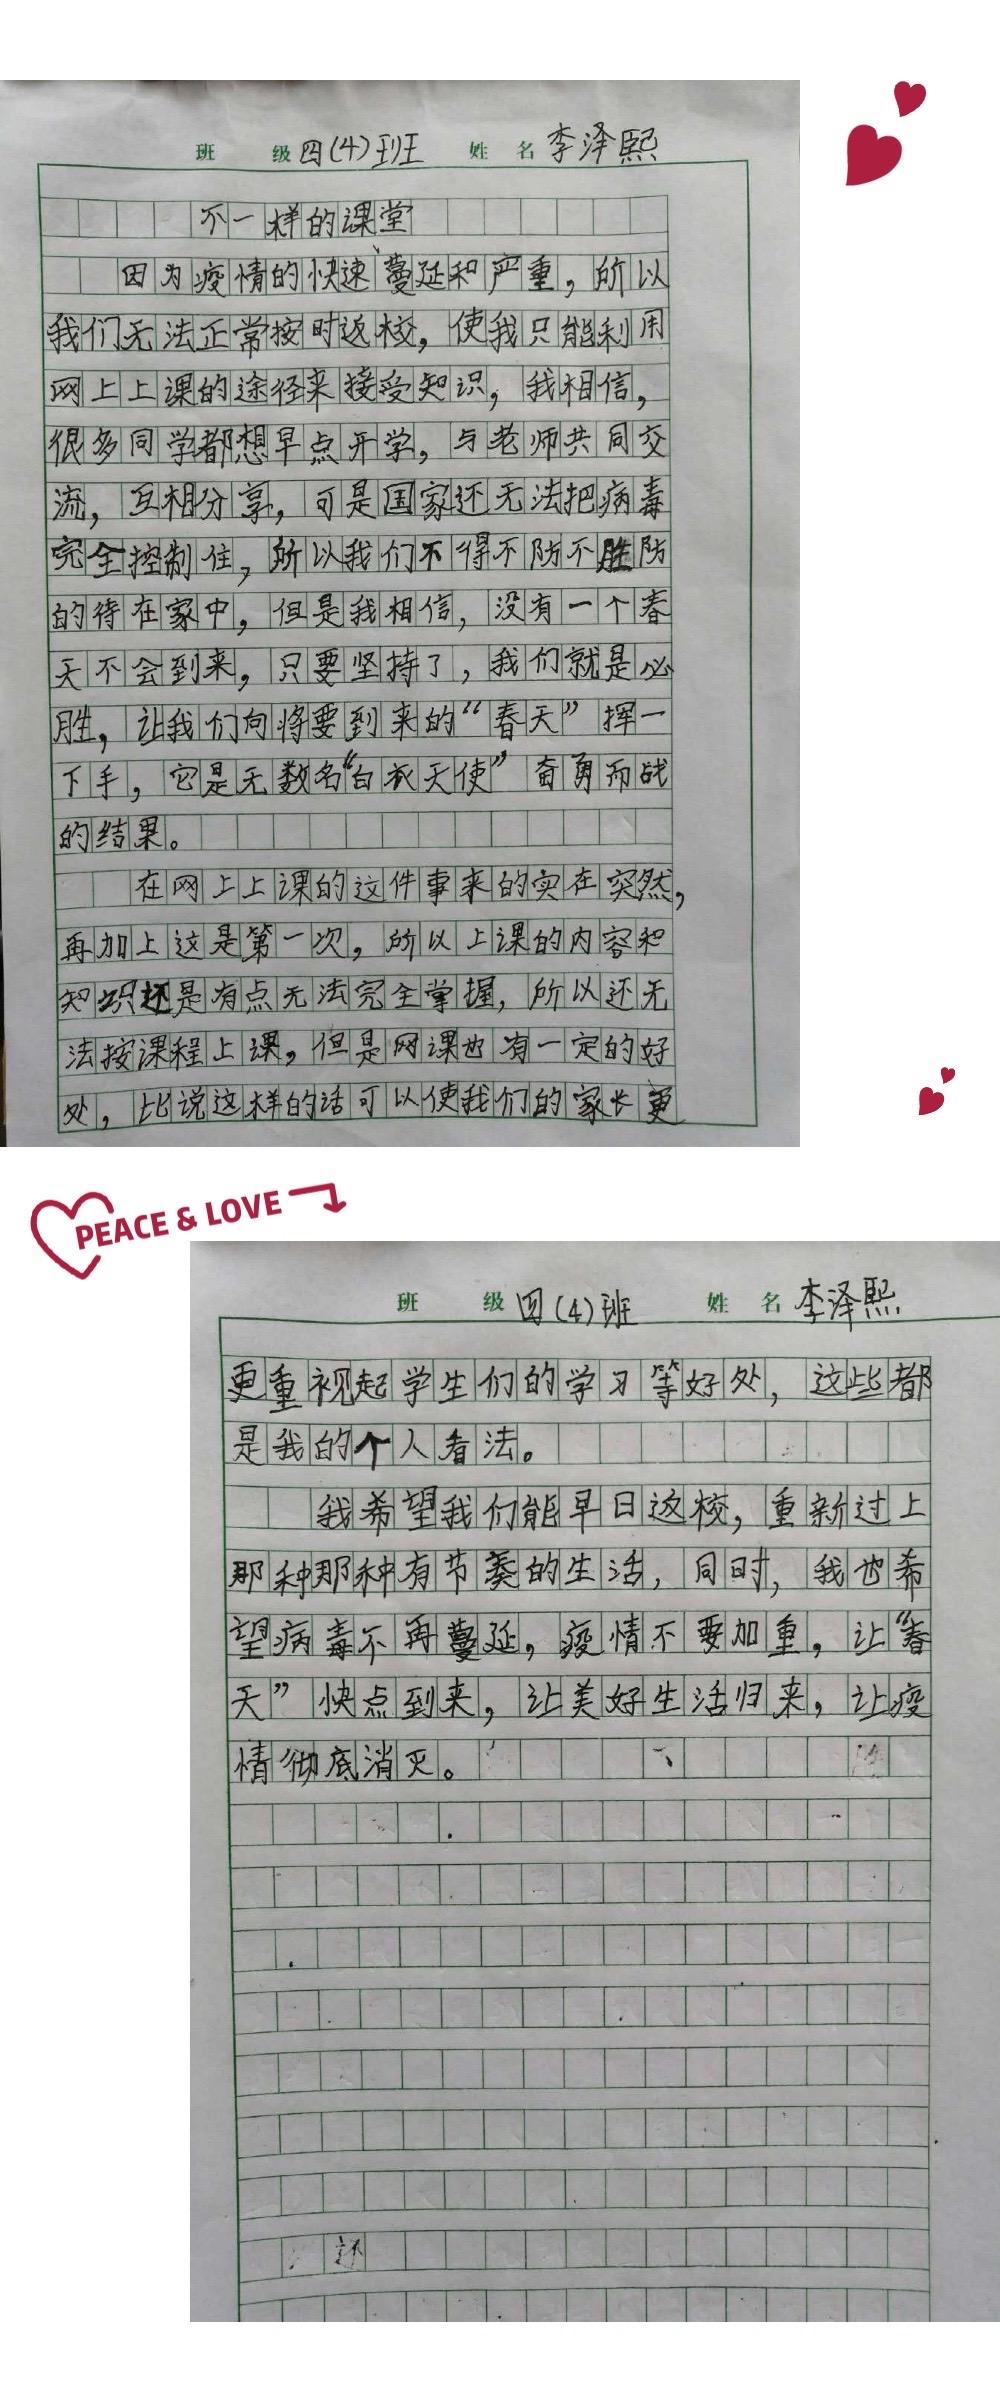 班 级 四(4)班 姓 名 李泽熙
不一样的课堂
因为疫情的快速、蔓延和严重，所以
我们无法正常按时返校，使我只能利用
网上上课的途径来接受知识，我相信，
很多同学都想早点开学，与老师共同交
流，互相分享，可是国家还无法把病毒
完全控制住，所以我们不得不防不胜防
的待在家中，但是我相信，没有一个春
天不会到来，只要坚持了，我们就是必
胜，让我们向将要到来的“春天”挥一
下手，它是无数名“白衣天使”奋勇而战
的结果。
在网上上课的这件事来的实在突然，
再加上这是第一次，所以上课的内容和
知识还是有点无法完全掌握，所以还无
法按课程上课，但是网课也有一定的好
处，比说这样的话可以使我们的家长更
PEACE & LOVE
班 级 四(4)班 姓 名 李泽熙
更重视起学生们的学习等好处，这些都
是我的个人看法。
我希望我们能早日返校，重新过上
那种那种有节奏的生活，同时，我也希
望病毒不再蔓延，疫情不要加重，让“春
天”快点到来，让美好生活归来，让疫
情彻底消灭。